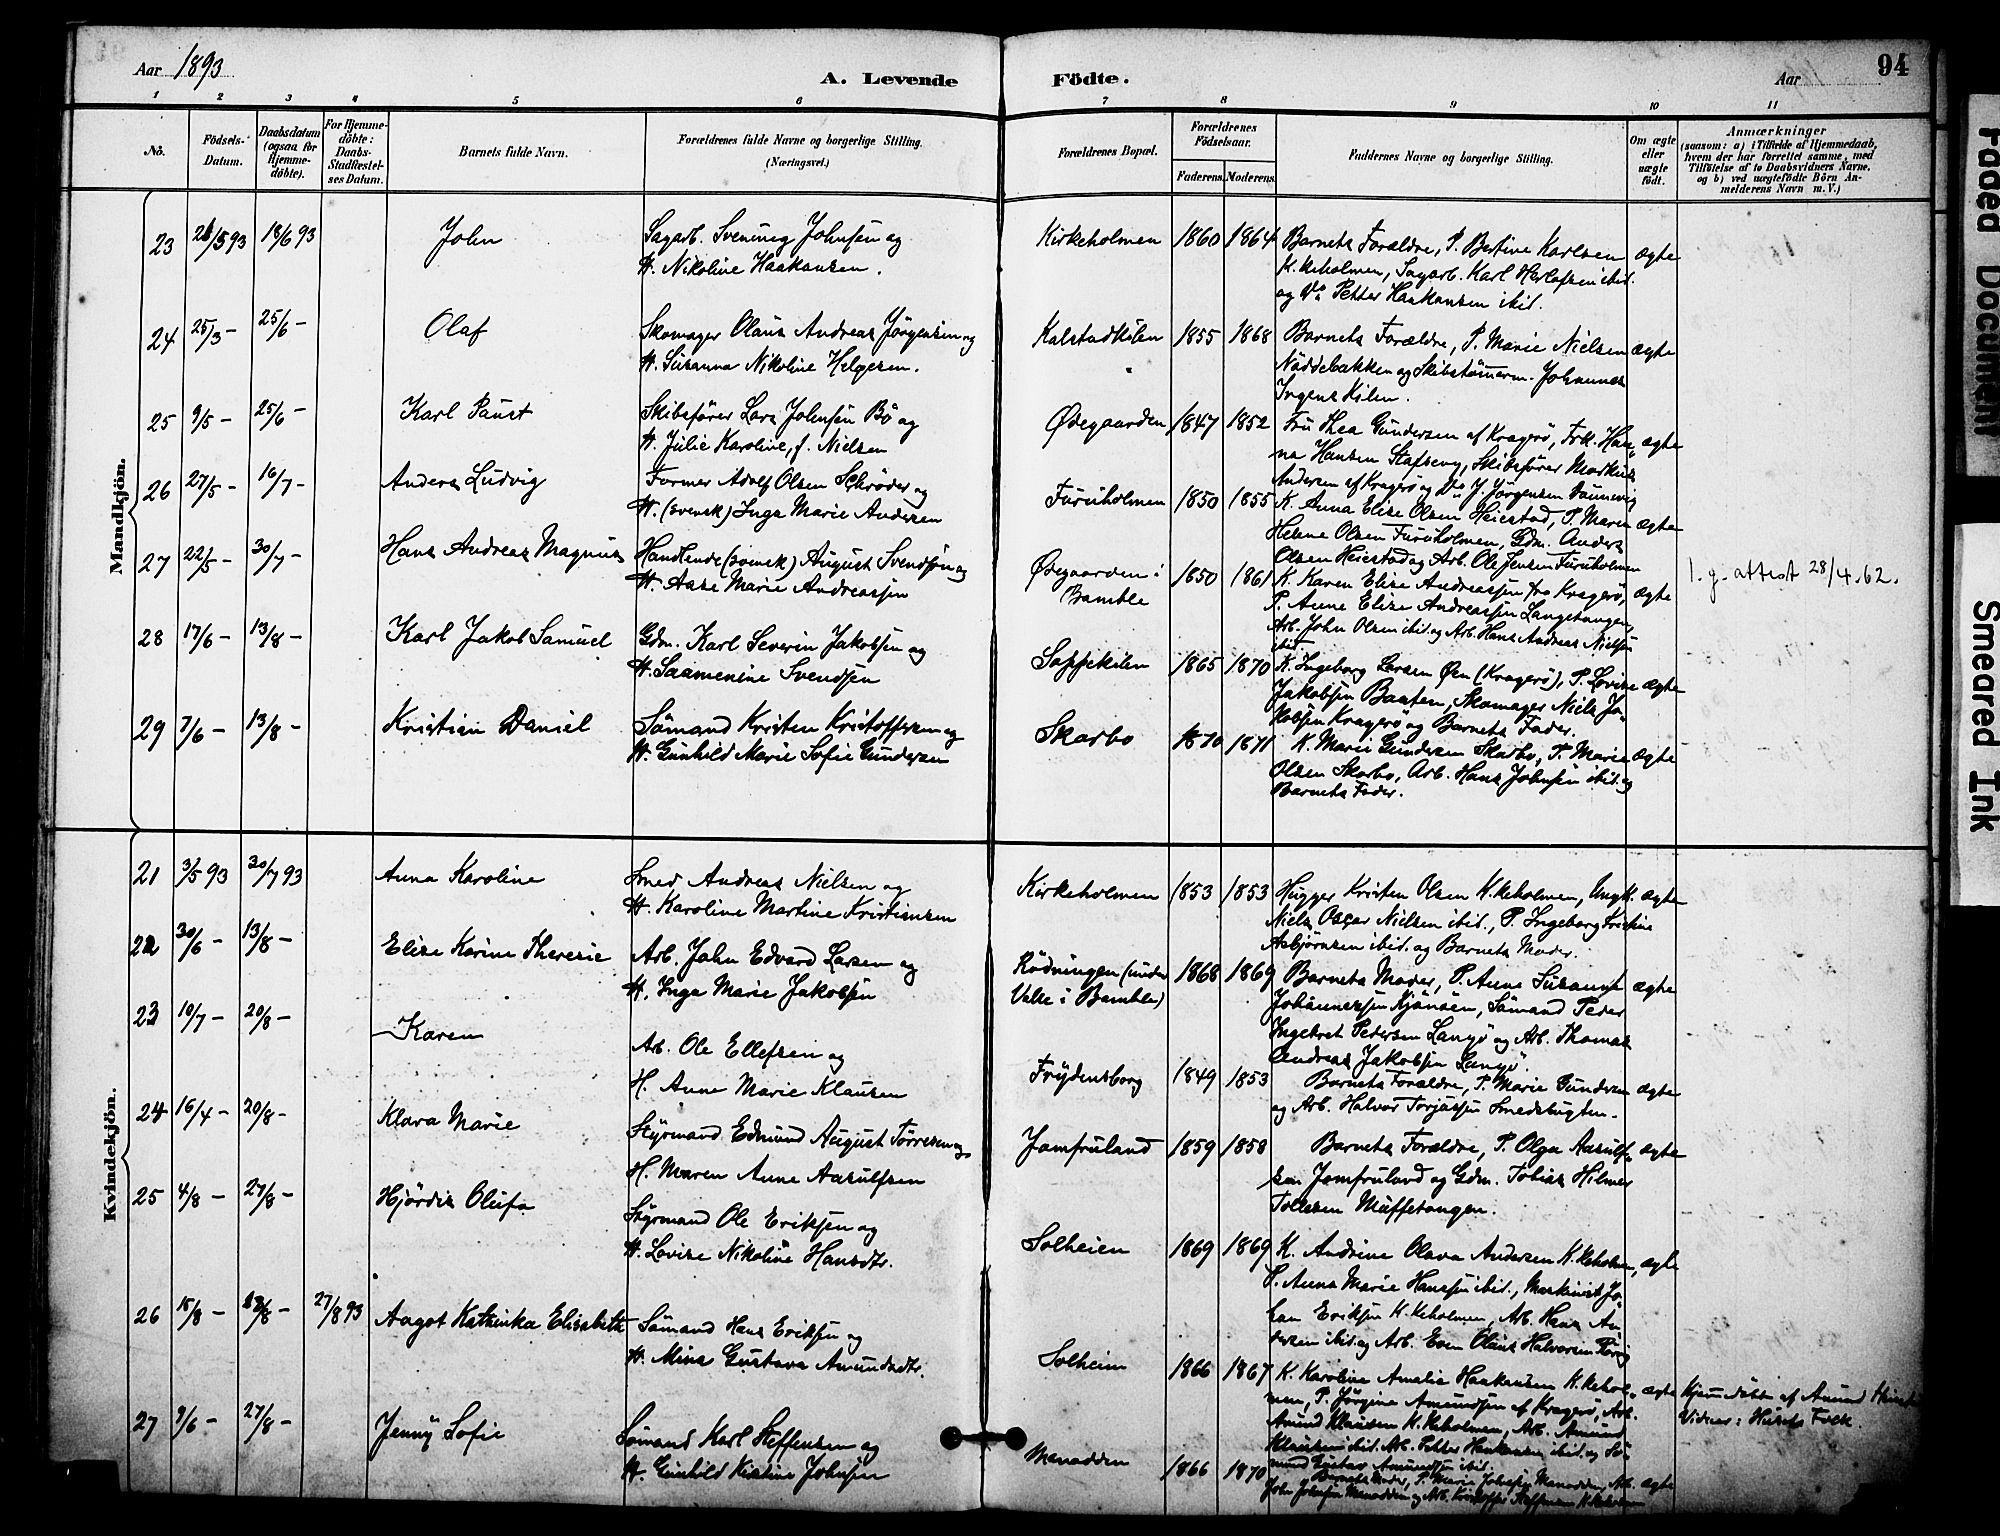 Aar 1893
A. Levende
Födte.
Aar
94
1 2 3 4 5 6 7 8 9 10 11
No.
Födsels-Datum.
Daabsdatum (ogsaa for Hjemme-döbte).
For Hjemme-döbte: Daabs-Stadfæstel-ses Datum.
Barnets fulde Navn.
Forældrenes fulde Navne og borgerlige Stilling.
(Næringsvei.)
Forældrenes Bopæl.
Forældrenes Födselsaar.
Faderens. Moderens.
Faddernes Navne og borgerlige Stilling.
Om ægte eller uægte födt.
Anmærkninger
(saasom: a) i Tilfælde af Hjemmedaab,
hvem der har forrettet samme, med
Tilföielse af to Daabsvidners Navne,
og b) ved uægtefödte Börn An-
melderens Navn m. V.)
Mandkjön.
23 /5 93 18/6 93 John
Sagarb. Svenning Johnsen og
H. Nikoline Haakansen.
Kirkeholmen 1860 1864
Barnets Forældre, P. Bertine Karlsen ægte
K.keholmen, Sagarb. Karl Herlofsen ibid.
og Do Petter Haakansen ibid.
24 25/3 – 25/6 – Olaf
Skomager Olaus Andreas Jørgensen og
H. Susanna Nikoline Helgesen.
Kalstadkilen 1855 1868
Barnets Forældre, P. Marie Nielsen ægte
Nøddebakken og Skibstømerm. Johannes
Ingens Kilen.
25 9/5 – 25/6 – Karl Paust
Skibsfører Lars Johnsen Bö og
H. Julie Karoline, f. Nielsen
Ødegaarden 1847 1852
Fru Thea Gundersen af Kragerø, Frk. Han- ægte
na Hansen Stafseng, Skibsfører Markus
Andersen af Kragerø og Do J. Jørgensen
26 27/5 – 16/7 – Anders Ludvig
Former Adolf Olsen Schrøder og
H. (svensk) Inga Marie Andersen
Furuholmen 1850 1855
K. Anna Elise Olsen Heiestad, P. Maren ægte
Helene Olsen Furuholmen, Gdm. Anders
Olsen Heiestad og Arb. Ole Jensen Furuholmen
27 22/5 – 30/7 – Hans Andreas Magnus
Handlende (svensk) August Svendsen og
H. Aase Marie Andreassen
Ødegaarden i Bamble 1850 1861
K. Karen Elise Andreassen fra Kragerø, ægte
P. Anne Elise Andreassen Langetangen,
Arb. John Olsen ibid. og Arb. Hans Andreas Nielsen
ibid.
1. g. attest 28/4.62.
28 17/6 – 13/8 – Karl Jakob Samuel
Gdm. Karl Severin Jakobsen og
H. Saamenine Svendsen
Soppekilen 1865 1870
K. Ingeborg Larsen Øen (Kragerø), P. Lovise ægte
Jakobsen Baaten, Skomager Niels Ja-
kobsen Kragerø og Barnets Fader.
29 7/6 – 13/8 – Kristian Daniel
Sømand Kristen Kristoffersen og
H. Gunhild Marie Sofie Gundersen
Skarbo 1870 1871
K. Marie Gundersen Skarbo, P. Marie ægte
Olsen Skarbo, Arb. Hans Johnsen ibid. og
Barnets Fader.
Kvindekjön.
21 3/5 93 30/7 93 Anna Karoline
Smed Andreas Nielsen og
H. Karoline Martine Kristiansen
Kirkeholmen 1853 1853
Hugger Kristen Olsen K.keholmen, Ungk. ægte
Niels Oscar Nielsen ibid., P. Ingeborg Kristine
Asbjørnsen ibid. og Barnets Moder.
22 30/6 – 13/8 – Elise Karine Theresie
Arb. John Edvard Larsen og
H. Inga Marie Jakobsen
Rødningen (under
Valle i Bamble) 1868 1869
Barnets Moder, P. Anne Susanne ægte
Johannessen Kjønøen, Sømand Peder
Ingebret Pedersen Langø og Arb. Thomas
Andreas Jakobsen Langø.
23 10/7 – 20/8 – Karen
Arb. Ole Ellefsen og
H. Anne Marie Klausen
Frydensborg 1849 1853
Barnets Forældre, P. Marie Gundersen ægte
og Arb. Halvor Torjussen Smedsbugten.
24 16/4 – 20/8 – Klara Marie
Styrmand Edmund August Tørresen og
H. Maren Anne Aasulfsen
Jomfruland 1859 1858
Barnets Forældre, P. Olga Aasulf- ægte
sen Jomfruland og Gdm. Tobias Hilmer
Tollesen Muffetangen.
25 4/8 – 27/8 – Hjördis Olufa
Styrmand Ole Eriksen og
H. Lovise Nikoline Hansdtr.
Solheien 1869 1869
K. Andrine Olava Andersen K.keholmen, ægte
P. Anna Marie Hanssen ibid., Maskinist Jo-
han Eriksen K.keholmen, Arb. Hans An-
dersen ibid. og Arb. Even Olaus Halvorsen
26 15/8 – /8 – 27/8 93 Aagot Kathinka Elisabeth
Sømand Hans Eriksen og
H. Mina Gustava Amundsdtr.
Solheim 1866 1867
K. Karoline Amalie Haakansen K.kehol- ægte
men, P. Jørgine Amundsen af Kragerø, Arb.
Amund Klausen K.keholmen, Arb. Amund
Klausen ibid. Arb. Petter Haakansen ibid. og Sö-
mand Gustav Amundsen ibid.
Hjemmedøbt af Amund
Vidner: Husets Folk
27 9/6 – 27/8 – Jenny Sofie
Sømand Karl Steffensen og
H. Gunhild Kistine Johnsen
Manodden 1866 1870
Barnets Moder, P. Marie Johnsen Manodden, Arb. ægte
John Johnsen Manodden og Arb. Kristoffer Steffensen K.keholmen
Faded Document
Smeared Ink